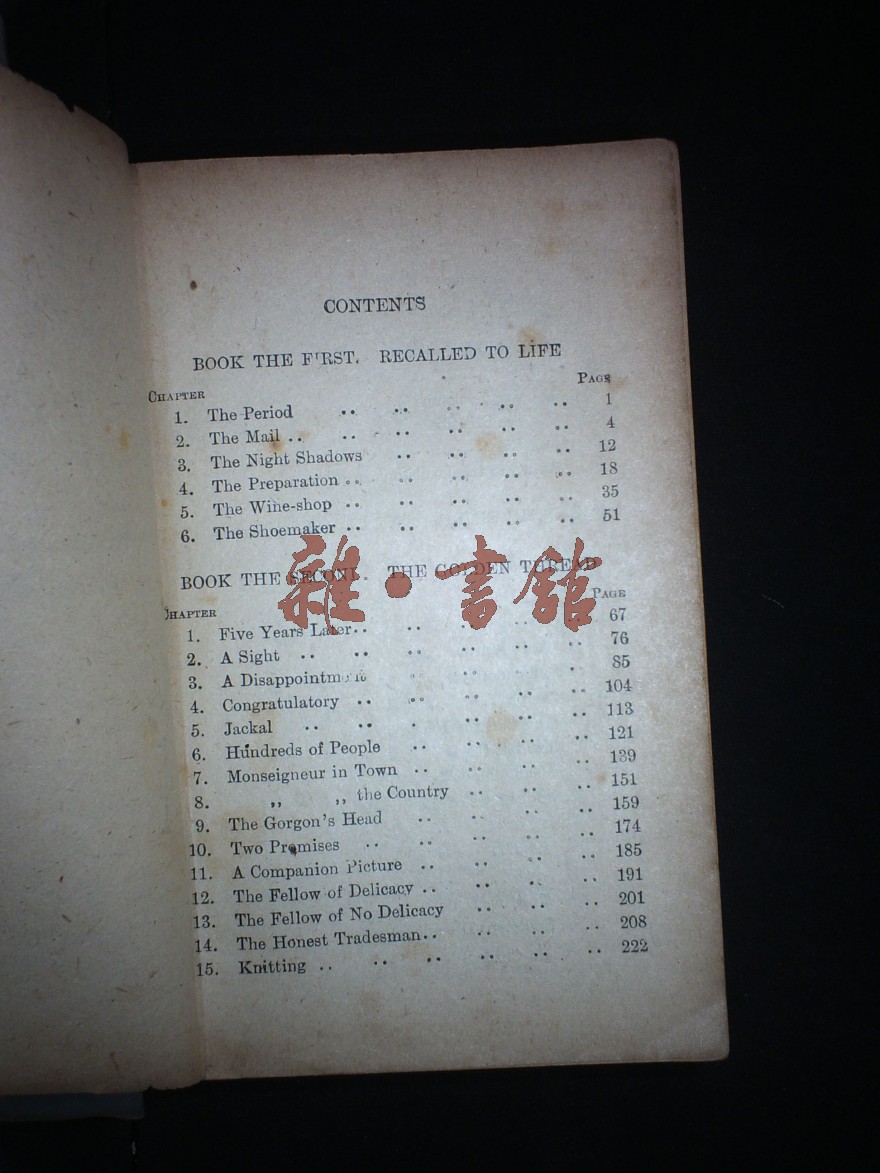 CONTENTS
BOOK THE FIRST. RECALLED TO LIFE
CHAPTER PAGE
1. The Period .. .. .. .. .. 1
2. The Mail .. .. .. .. .. .. 4
3. The Night Shadows .. .. .. .. 12
4. The Preparation .. .. .. .. .. 18
5. The Wine-shop .. .. .. .. .. 35
6. The Shoemaker .. .. .. .. .. 51
BOOK THE SECOND. THE GOLDEN THREAD
CHAPTER PAGE
1. Five Years Later .. .. .. .. .. 67
2. A Sight .. .. .. .. .. .. 76
3. A Disappointment .. .. .. .. 85
4. Congratulatory .. .. .. .. .. 104
5. Jackal .. .. .. .. .. .. 113
6. Hundreds of People .. .. .. .. 121
7. Monseigneur in Town .. .. .. .. 139
8. ,, ,, the Country .. .. .. 151
9. The Gorgon's Head .. .. .. .. 159
10. Two Promises .. .. .. .. .. 174
11. A Companion Picture .. .. .. .. 185
12. The Fellow of Delicacy .. .. .. .. 191
13. The Fellow of No Delicacy .. .. .. 201
14. The Honest Tradesman .. .. .. .. 208
15. Knitting .. .. .. .. .. .. 222
雜·書館